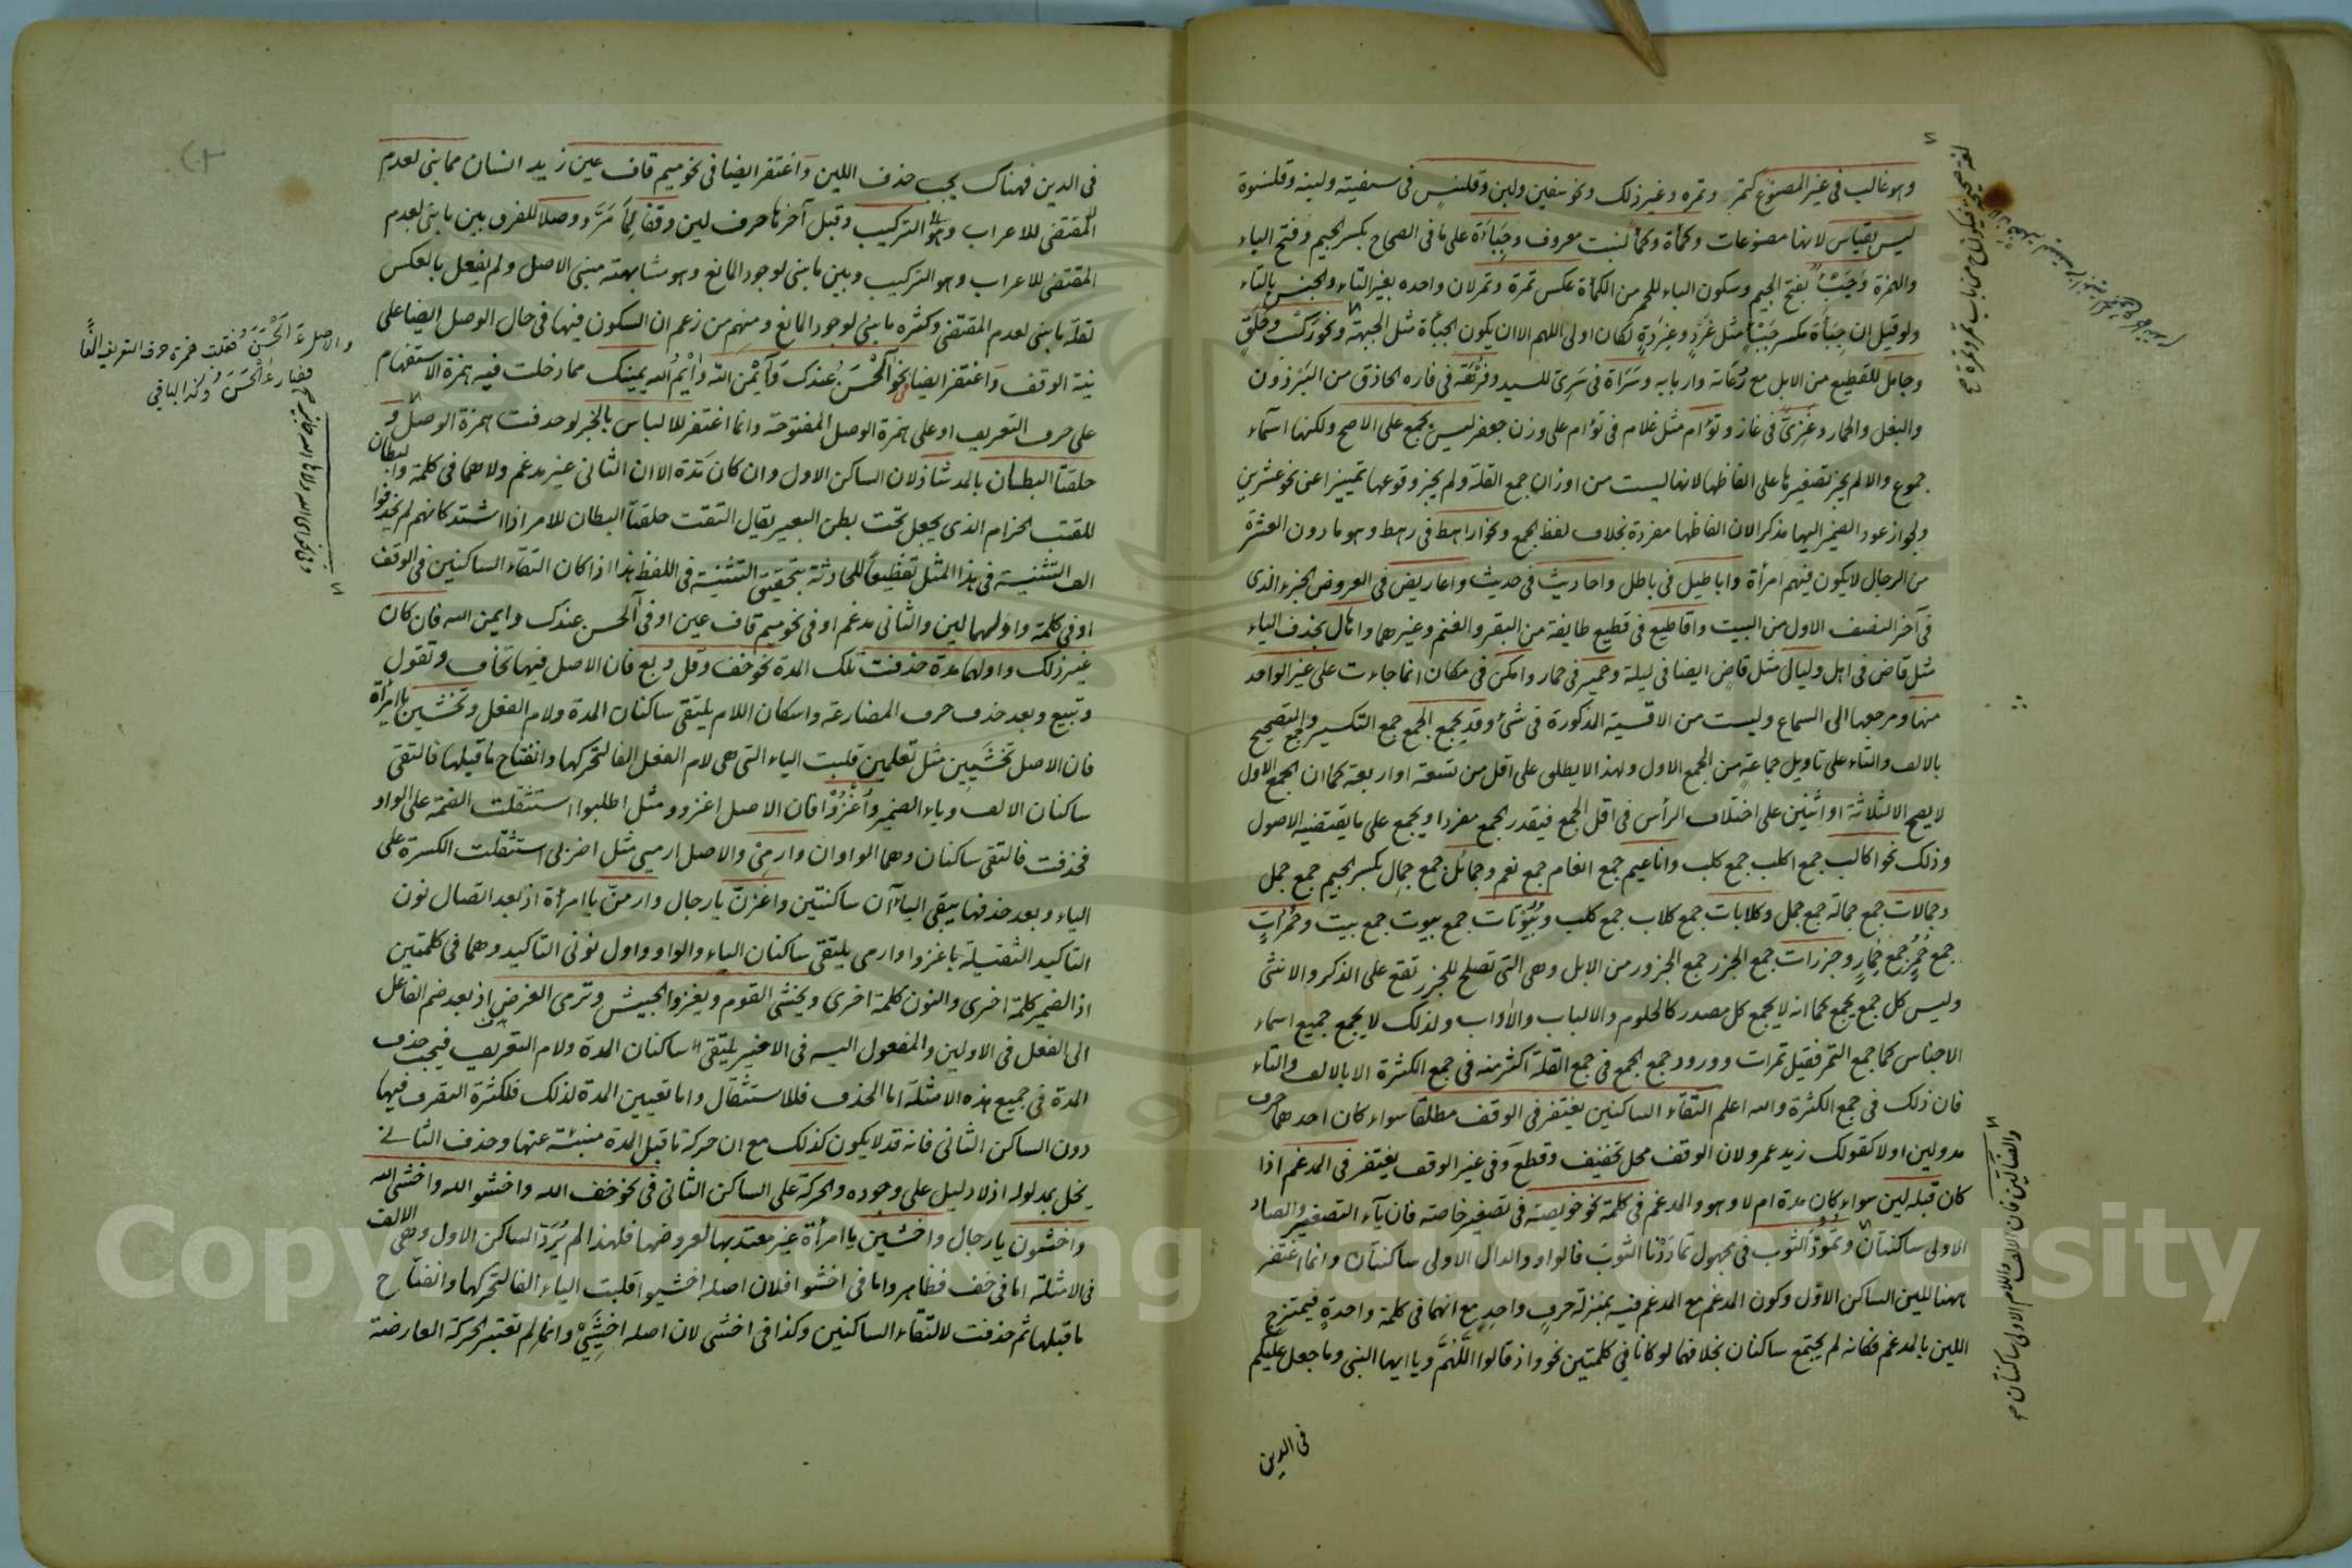 وهو غالب في غير المصنوع كتمر وتمرة وغير ذلك ونحو سفين ولبن وقلنس في سفينة ولبنة وقلنسوة
ليس بقياس لانها مصنوعات وكمأة وكمأ لنبت معروف وجبأة على ما في الصحاح بكسر الجيم وفتح الباء
والهمزة وجَبْء بفتح الجيم وسكون الباء للحمر من الكمأة عكس تمرة وتمر لان واحده بغير التاء والجنس بالتاء
ولو قيل ان جبأة مكسر جبء مثل غرد وغردة لكان اولى اللهم الا ان يكون الجبأة مثل الجبهة ونحو ركب وحلق
وجامل للقطيع من الابل مع رعاته واربابه وسَرَاة في سَرِيّ للسيد وفُرْهَة في فاره الحاذق من البرذون
والبغل والحمار وغَزِيّ في غاز وتؤام مثل غلام في توأم على وزن جعفر ليس بجمع على الاصح ولكنها اسماء
جموع والا لم يجز تصغيرها على الفاظها لانها ليست من اوزان جمع القلة ولم يجز وقوعها تمييزا عن نحو عشرين
ولجواز عود الضمير اليها مذكرا لان الفاظها مفردة بخلاف لفظ الجمع ونحو اراهط في رهط وهو ما دون العشرة
من الرجال لا يكون فيهم امرأة واباطيل في باطل واحاديث في حديث واعاريض في العروض الجزء الذي
في آخر النصف الاول من البيت واقاطيع في قطيع طايفة من البقر والغنم وغيرهما واهال بحذف الياء
مثل قاض في اهل وليال مثل قاض ايضا في ليلة وحمير في حمار وامكن في مكان انما جاءت على غير الواحد
منها ومرجعها الى السماع وليست من الاقسية المذكورة في شئ وقد يجمع الجمع جمع التكسير والجمع التصحيح
بالالف والتاء على تاويل جماعة من الجمع الاول ولهذا لا يطلق على اقل من تسعة او اربعة كما ان الجمع الاول
لا يصح الا لثلاثة او اثنين على اختلاف الرأس في اقل الجمع فيقدر الجمع مفردا ويجمع على ما يقتضيه الاصول
وذلك نحو اكالب جمع اكلب جمع كلب واناعيم جمع انعام جمع نعم وجمائل جمع جمال بكسر الجيم جمع جمل
وجمالات جمع جمالة جمع جمل وكلابات جمع كلاب جمع كلب وبيوتات جمع بيوت جمع بيت وحمرات
جمع حُمُر جمع حمار وجزرات جمع الجزر جمع الجزور من الابل وهي التي تصلح للجزر تقع على الذكر والانثى
وليس كل جمع يجمع كما انه لا يجمع كل مصدر كالحلوم والالباب والآداب ولذلك لا يجمع جميع اسماء
الاجناس كما جمع التمر فقيل تمرات وورود جمع الجمع في جمع القلة اكثر منه في جمع الكثرة الا بالالف والتاء
فان ذلك في جمع الكثرة والله اعلم التقاء الساكنين يغتفر في الوقف مطلقا سواء كان احدهما حرف
مد ولين او لا كقولك زيد عمرو لان الوقف محل تخفيف وقطع وفي غير الوقف يغتفر في المدغم اذا
كان قبله لين سواء كان مدة ام لا وهو والمدغم في كلمة نحو خويصة في تصغير خاصة فان ياء التصغير والصاد
الاولى ساكنتان وتُمُودّ الثوب في مجهول تمادَدْنا الثوبَ فالواو والدال الاولى ساكنتان وانما اغتفر
ههنا للين الساكن الاول وكون المدغم مع المدغم فيه بمنزلة حرف واحد مع انهما في كلمة واحدة فيمتزج
اللين بالمدغم فكانه لم يجتمع ساكنان بخلاف ما لو كانا في كلمتين نحو واذ قالوا اللَّهُمَّ ويا ايها النبي وما جعل عليكم
في الدين
والضالين فان الالف واللام الاولى ساكنتان صح
في الدين فهناك يجب حذف اللين واغتفر ايضا في نحو ميم قاف عين زيد انسان مما بنى لعدم
المقتضى للاعراب وهو التركيب وقبل آخرها حرف لين وقفا لما مَرَّ ووصلا للفرق بين ما بنى لعدم
المقتضى للاعراب وهو التركيب وبين ما بنى لوجود المانع وهو مشابهته مبنى الاصل ولم يفعل بالعكس
لقلة ما بنى لعدم المقتضى وكثرة ما بنى لوجود المانع ومنهم من زعم ان السكون فيها في حال الوصل ايضا على
نية الوقف واغتفر ايضا في نحو آلْحَسَنُ عندك وآيْمُن الله وآيْمُ الله يمينك مما دخلت فيه همزة الاستفهام
على حرف التعريف او على همزة الوصل المفتوحة وانما اغتفر للالباس بالخبر لو حذفت همزة الوصل و
حلقتا البطان بالمد شاذ لان الساكن الاول وان كان مدة الا ان الثاني غير مدغم ولا هما في كلمة والبطان
للقتب الحزام الذي يجعل تحت بطن البعير يقال التقت حلقتا البطان للامر اذا اشتد كانهم لم يحذفوا
الف التثنية في هذا المثل تفظيعا للحادثة بتحقيق التثنية في اللفظ هذا اذا كان التقاء الساكنين في الوقف
او في كلمة واولهما لين والثاني مدغم او في نحو ميم قاف عين او في آلحسن عندك وايمن الله فان كان
غير ذلك واولهما مدة حذفت تلك المدة نحو خف وقل وبع فان الاصل فيها تخاف وتقول
وتبيع وبعد حذف حرف المضارعة واسكان اللام يلتقى ساكنان المدة ولام الفعل وتخشين يا امرأة
فان الاصل تخشيين مثل تعلمين قلبت الياء التي هي لام الفعل الفا لتحركها وانفتاح ما قبلها فالتقى
ساكنان الالف وياء الضمير واُغْزُوا فان الاصل اغزووا مثل اطلبوا استثقلت الضمة على الواو
فحذفت فالتقى ساكنان وهما الواوان وارمِيْ والاصل ارميى مثل اضربى استثقلت الكسرة على
الياء وبعد حذفها يبقى الياآن ساكنتين واغزنّ يا رجال وارمنّ يا امرأة اذ بعد اتصال نون
التاكيد الثقيلة باغزوا وارمى يلتقى ساكنان الياء والواو واول نونى التاكيد وهما في كلمتين
اذ الضمير كلمة اخرى والنون كلمة اخرى ويخشى القوم ويغزوا الجيش وترمى الغرض اذ بعد ضم الفاعل
الى الفعل في الاولين والمفعول اليه في الاخير يلتقى ساكنان المدة ولام التعريف فيجب حذف
المدة في جميع هذه الامثلة اما الحذف فللاستثقال واما تعيين المدة لذلك فلكثرة التصرف فيها
دون الساكن الثاني فانه قد لا يكون كذلك مع ان حركة ما قبل المدة منبئة عنها وحذف الثاني
يخل بمدلوله اذ لا دليل على وجوده والحركة على الساكن الثاني في نحو خف الله واخشوا الله واخشى الله
واخشون يا رجال واخشين يا امرأة غير معتد بها لعروضها فلهذا لم يُرَدّ الساكن الاول وهي الالف
في الامثلة اما في خف فظاهر واما في اخشوا فلان اصله اخشيوا قلبت الياء الفا لتحركها وانفتاح
ما قبلها ثم حذفت لالتقاء الساكنين وكذا في اخشى لان اصله اخشيى وانما لم تعتبر الحركة العارضة
والاصل ءَاَلْحَسَنُ فقلبت همزة حرف التعريف الفا
فصار آلْحَسَنُ وكذا الباقى